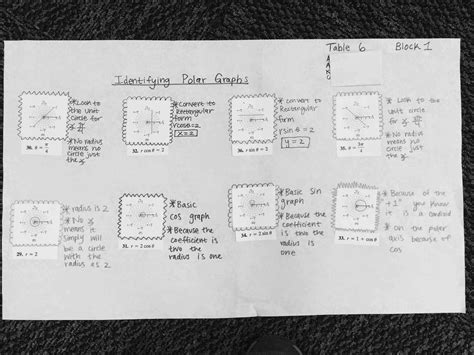 Table 6 Block 1
Identifying Polar Graphs
* Look to
the unit
circle for
* No radius
means no
circle just
the
30. θ =
* Convert to
Rectangular
form
rcosθ=2
x=2
32. r cos θ = 2
* Convert to
Rectangular
form
r sin θ = 2
y = 2
36. r sin θ = 2
* Look to
the unit
circle for
* No radius
means no
circle just
the
* radius is 2
* No
means it
simply will
be a circle
with the
radius as 2
29. r = 2
* Basic
cos graph
* Because the
coefficient
is two the
radius is one
31. r = 2 cos θ
* Basic sin
graph
* Because the
coefficient
is two the
radius is
one
34. r = 2 sin θ
* Because of the
+1" you know
it is a cardioid
* On the polar
axis because of
cos
33. r = 1 + cos θ